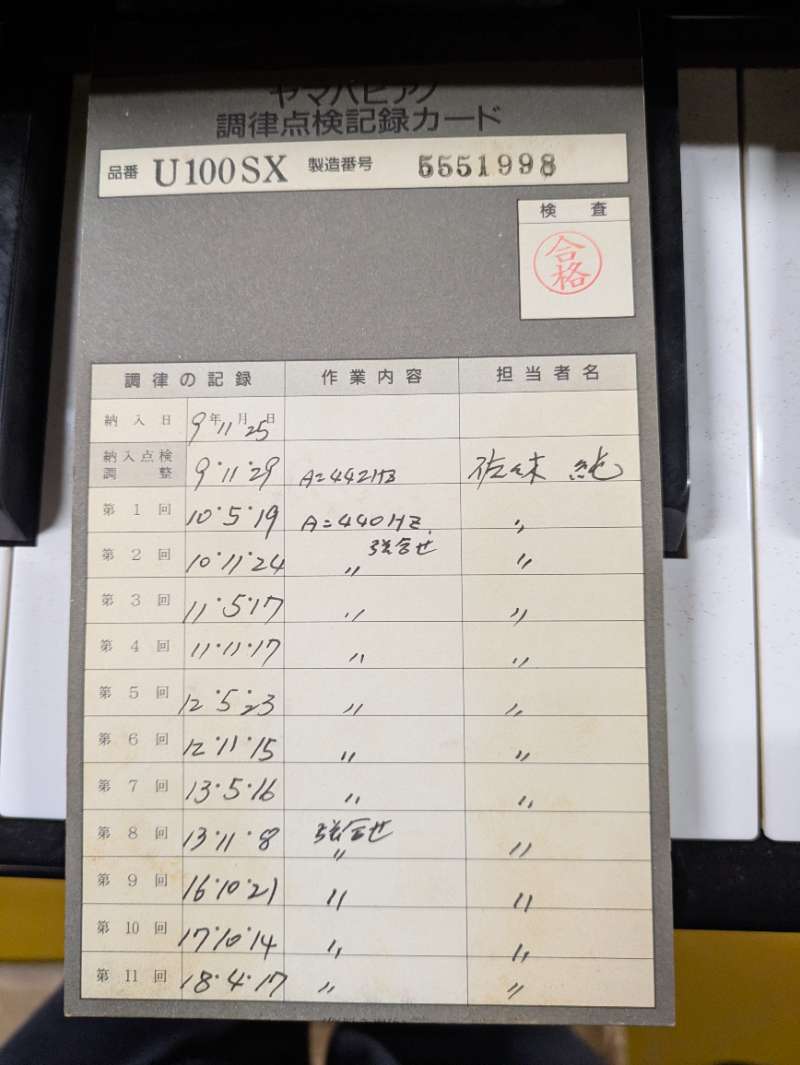 ヤマハピアノ
調律点検記録カード
品番 U100SX 製造番号 5551998
検査
合格
調律の記録 作業内容 担当者名
納入日 9年11月25日
納入点検調整 9・11・29 A=442HZ 佐々木 純
第1回 10・5・19 A=440HZ. 〃
第2回 10・11・24 〃 弦合せ 〃
第3回 11・5・17 〃 〃
第4回 11・11・17 〃 〃
第5回 12・5・23 〃 〃
第6回 12・11・15 〃 〃
第7回 13・5・16 〃 〃
第8回 13・11・8 弦合せ 〃 〃
第9回 16・10・21 〃 〃
第10回 17・10・14 〃 〃
第11回 18・4・17 〃 〃